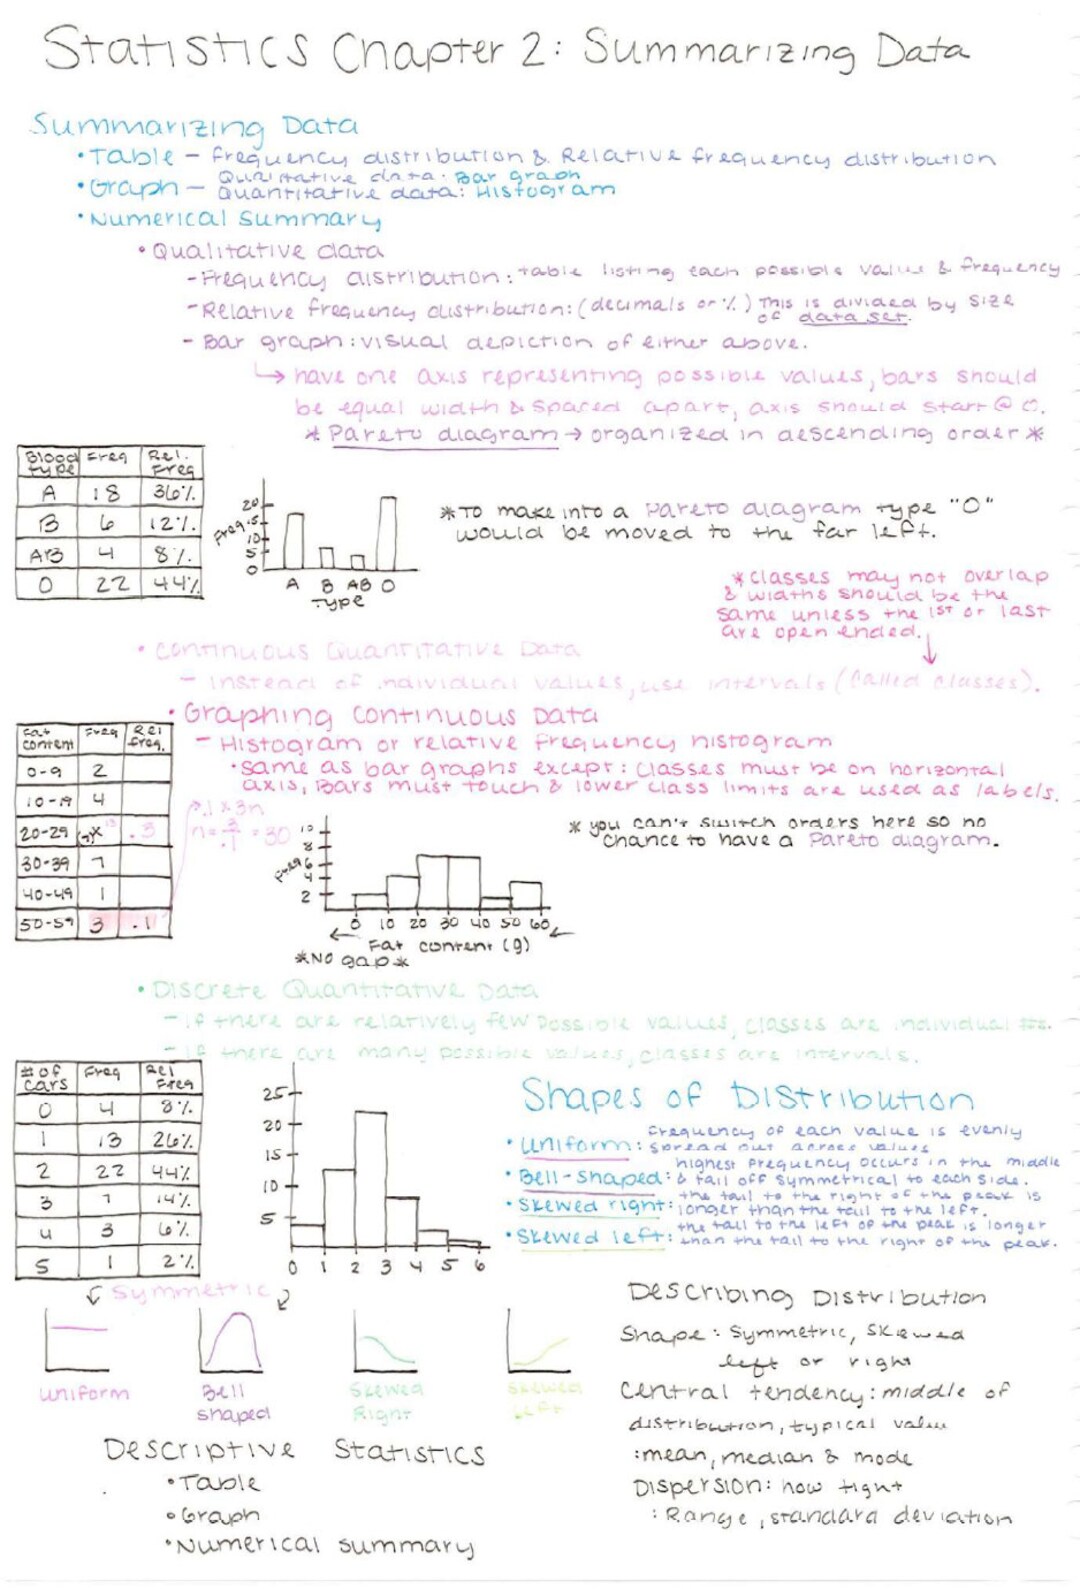 Statistics Chapter 2: Summarizing Data
Summarizing Data
• Table – frequency distribution & Relative frequency distribution
• Graph – Qualitative data: Bar graph
Quantitative data: Histogram
• Numerical summary
• Qualitative data
- Frequency distribution: table listing each possible value & frequency
- Relative frequency distribution: (decimals or %) This is divided by size
of data set.
- Bar graph: visual depiction of either above.
↳ have one axis representing possible values, bars should
be equal width & spaced apart, axis should start @ 0.
* Pareto diagram → organized in descending order *
Blood type Freq Rel. Freq
A 18 36%
B 6 12%
AB 4 8%
O 22 44%
Freq.
20
15
10
5
0
A B AB O
Type
* To make into a Pareto diagram type "O"
would be moved to the far left.
* Classes may not overlap
& widths should be the
same unless the 1st or last
are open ended.
• Continuous Quantitative Data
- instead of individual values, use intervals (called classes).
• Graphing Continuous Data
- Histogram or relative frequency histogram
• same as bar graphs except: classes must be on horizontal
axis, Bars must touch & lower class limits are used as labels.
Fat content Freq Rel freq.
0-9 2
10-19 4
20-29 x 13 .3
30-39 7
40-49 1
50-59 3 .1
.1 x 3n
n = 3/.1 = 30
Freq
10
8
6
4
2
0 10 20 30 40 50 60
Fat content (g)
*NO gap*
* you can't switch orders here so no
chance to have a Pareto diagram.
• Discrete Quantitative Data
- if there are relatively few possible values, classes are individual
- if there are many possible values, classes are intervals.
# of cars Freq Rel Freq
0 4 8%
1 13 26%
2 22 44%
3 7 14%
4 3 6%
5 1 2%
25
20
15
10
5
0 1 2 3 4 5 6
Shapes of Distribution
• Uniform: Frequency of each value is evenly
spread out across values
• Bell-shaped: highest frequency occurs in the middle
& tail off symmetrical to each side.
• Skewed right: the tail to the right of the peak is
longer than the tail to the left.
• Skewed left: the tail to the left of the peak is longer
than the tail to the right of the peak.
Symmetric
Uniform
Bell shaped
Skewed Right
Skewed Left
Describing Distribution
Shape: Symmetric, skewed
left or right
Central tendency: middle of
distribution, typical value
: mean, median & mode
Dispersion: how tight
: Range, standard deviation
Descriptive Statistics
• Table
• Graph
• Numerical summary